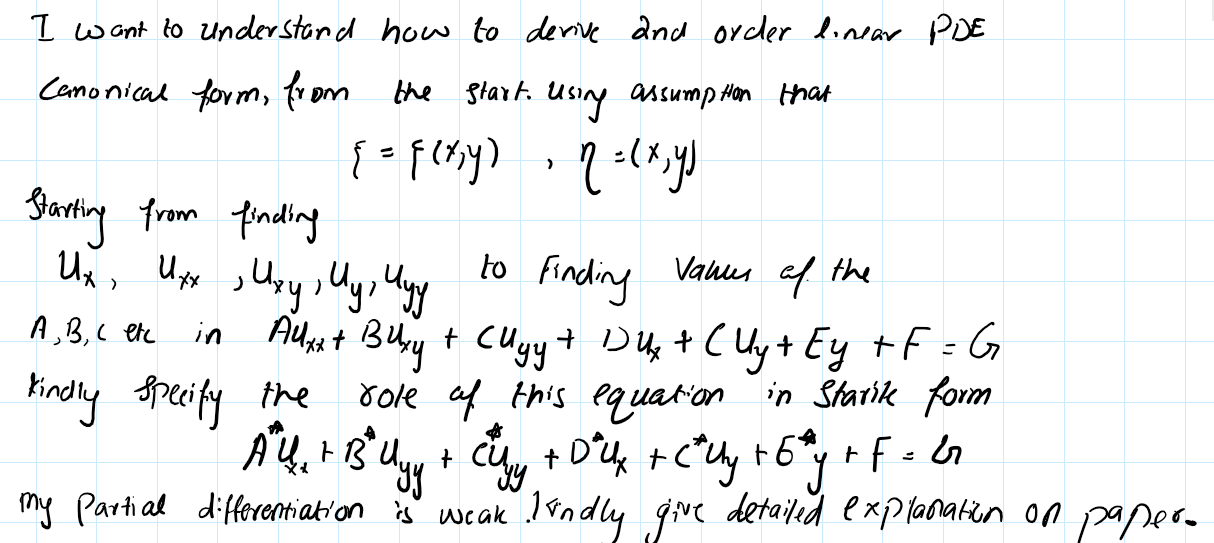 I want to understand how to derive 2nd order linear PDE
Canonical form, from the start. Using assumption that
ξ = ξ(x,y) , η =(x,y)
Starting from finding
Ux, Uxx, Uxy, Uy, Uyy to Finding Values of the
A, B, C etc in AUxx + BUxy + CUyy + DUx + CUy + Ey + F = G
kindly specify the role of this equation in Starik form
A*Uxx + B*Uyy + C*Uyy + D*Ux + C*Uy + E*y + F = G
My Partial differentiation is weak. kindly give detailed explanation on paper.